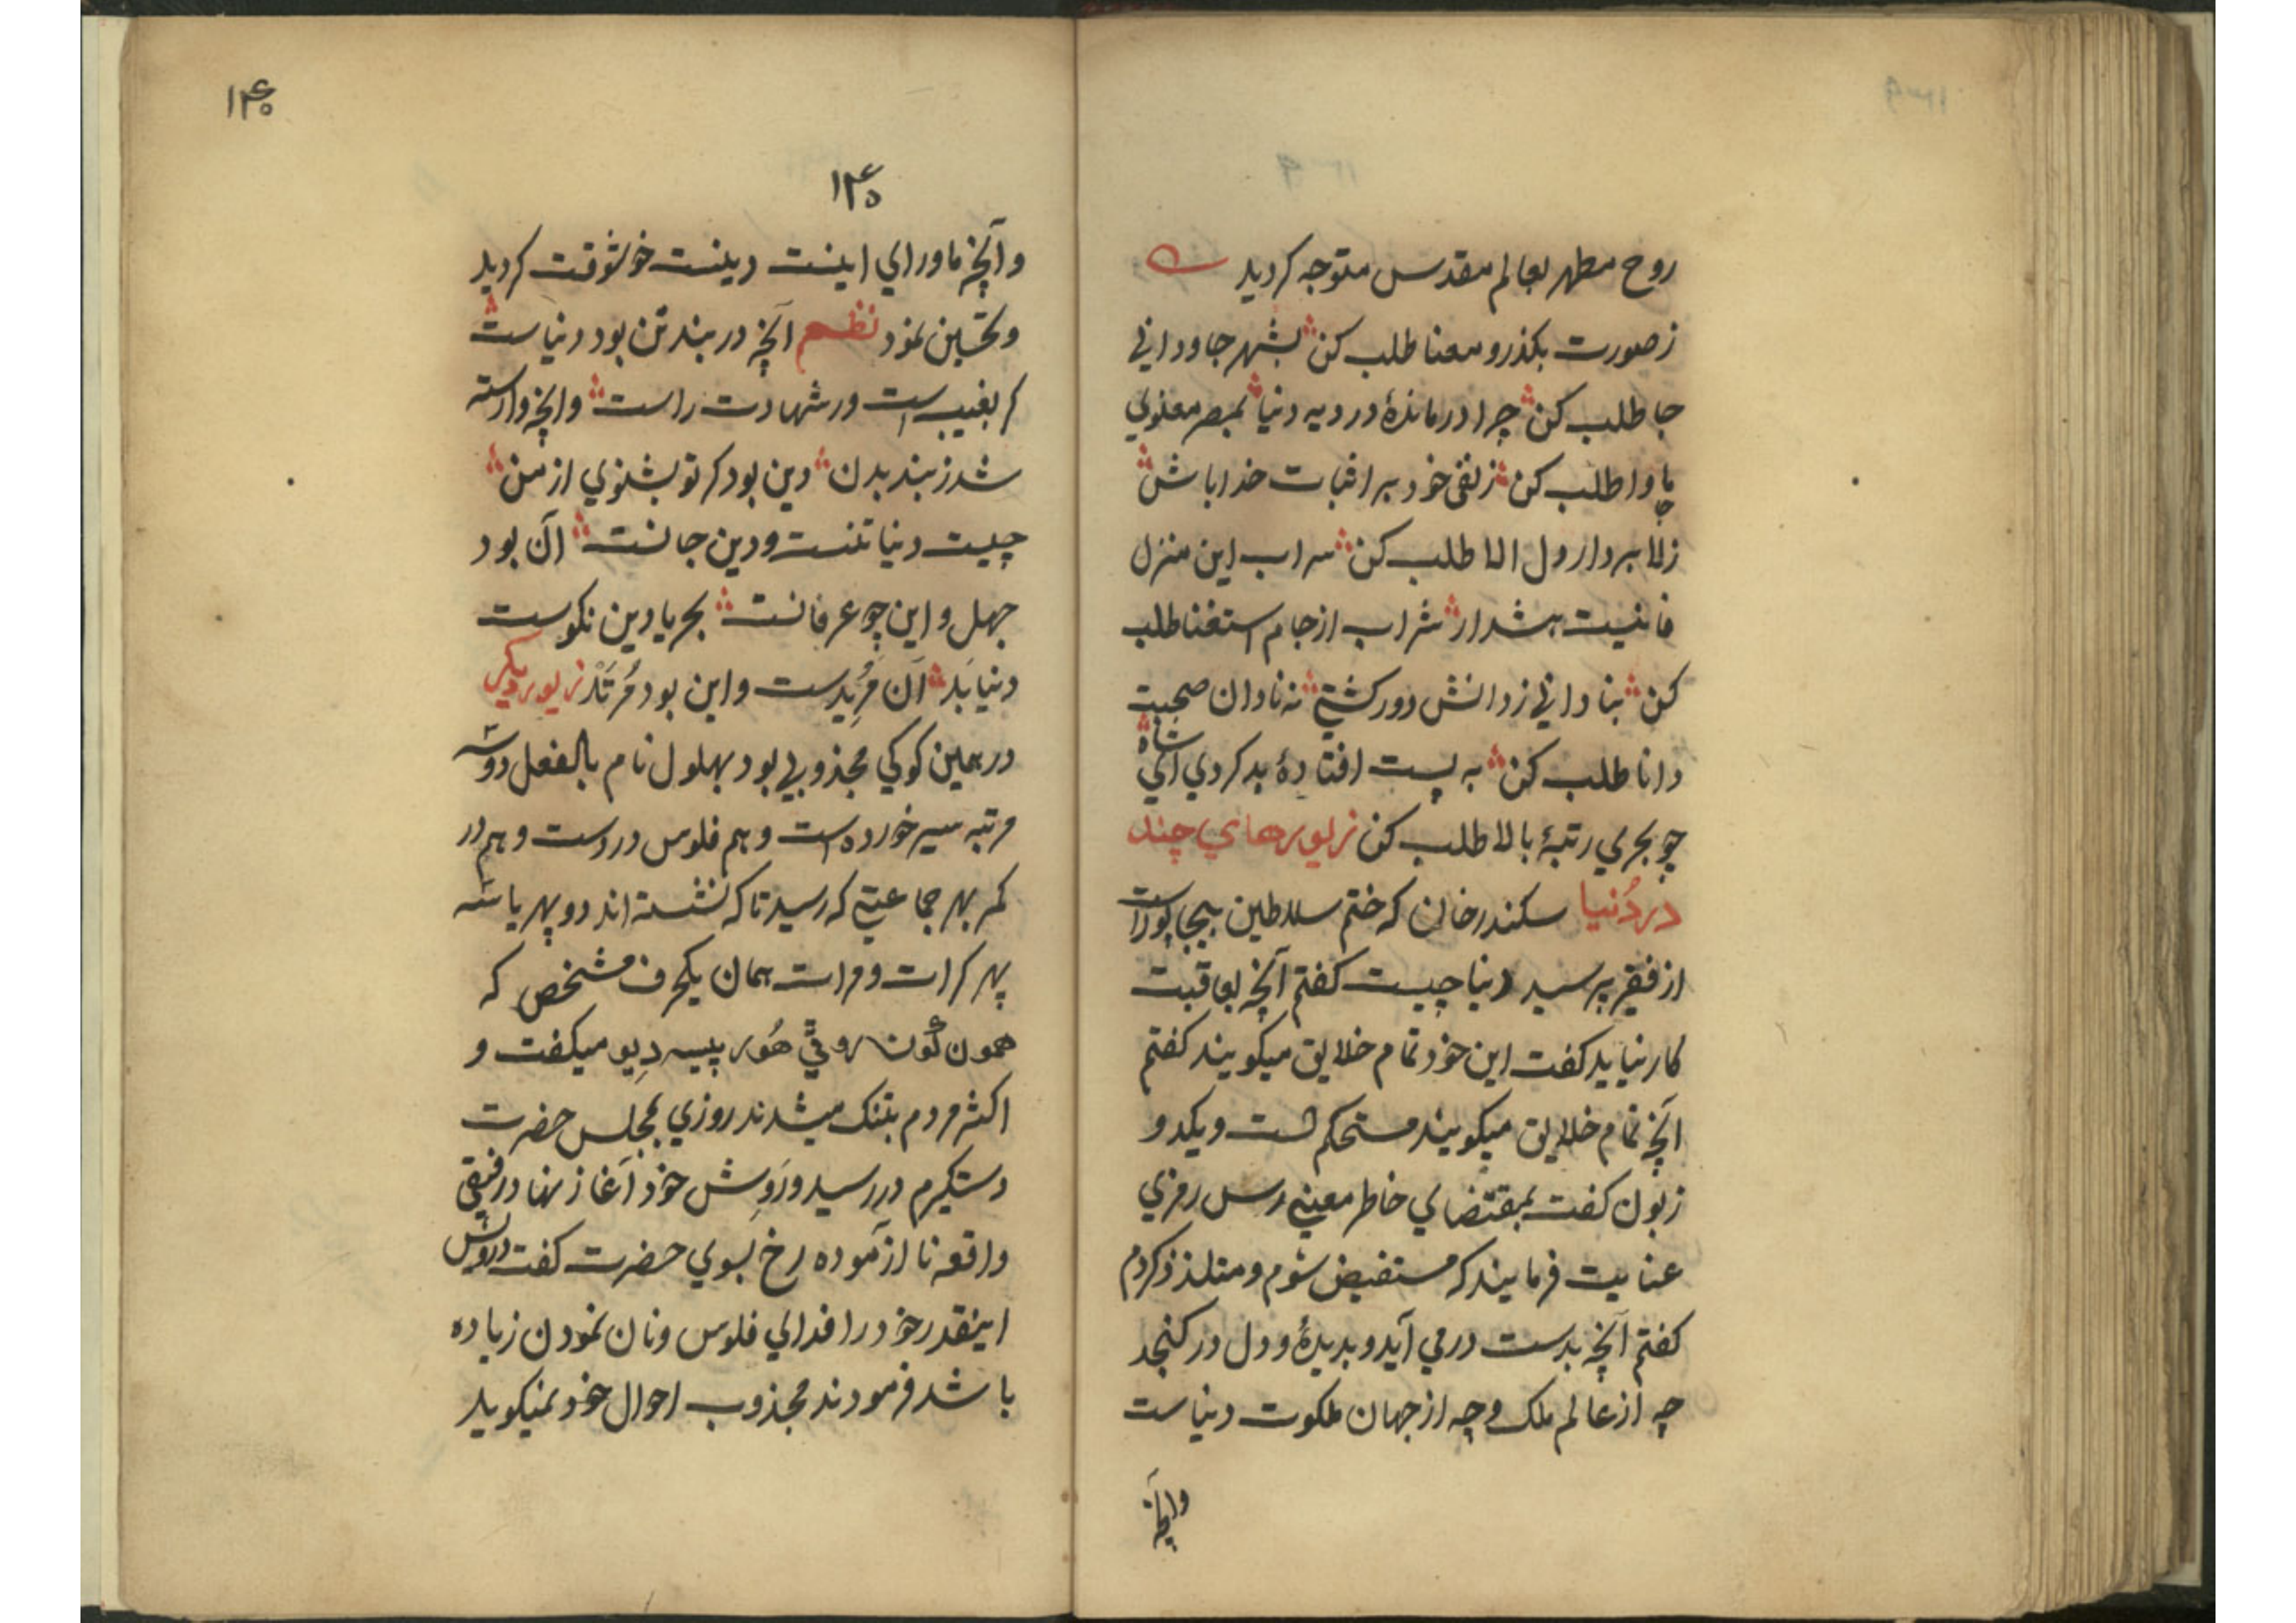 روح مطهر بعالم مقدس متوجه کردید
ز صورت بکذر و معنا طلب کن بشهر جاودانی
جا طلب کن چرا درماندهٔ در دیه دنیا بمصر معنوی
ماوا طلب کن ز نفی خود برا اثبات خدا باش
ز لا بردار دل الا طلب کن سراب این منزل
فانیست هشدار شراب از جام استغنا طلب
کن بنادانی ز دانش دور کشتی نه نادان صحبت
دانا طلب کن به پست افتادهٔ بد کردی ای شاه
چو بحری رتبهٔ بالا طلب کن زیورهای چند
در دُنیا سکندر خان که ختم سلاطین بیجاپور است
از فقیر پرسید دنیا چیست کفتم آنچه بعاقبت
کار نیاید کفت این خود تمام خلایق میکویند کفتم
آنچه تمام خلایق میکویند مستحکم است و یکد و
زبون کفت بمقتضای خاطر معنی رس رمزی
عنایت فرمایند که مستفیض شوم و متلذذ کردم
کفتم آنچه بدست در می آید و بدیدهٔ و دل در کنجد
چه از عالم ملک و چه از جهان ملکوت دنیاست
وانچه
۱۴۰
۱۴۰
و آنچه ماورای اینست دینست خوشوقت کردید
و تحسین نمود نظم آنچه در بند تن بود دنیاست
کر بغیب است ور شهادت راست وانچه وارسته
شد ز بند بدن دین بود کر تو بشنوی از من
چیست دنیا تنست و دین جانست آن بود
جهل و این چو عرفانست بحریا دین نکوست
دنیا بَد آن مُرِید ست و این بود مُرتَد زیور دیکر
در همین کوکی مجذوبی بود بهلول نام بالفعل دو سه
مرتبه سیر خورده است و هم فلوس در دست و هم در
کمر بهر جماعتی که رسید تا که نشسته اند دو پهر یا سه
پهر کرات و مرات همان یکحرف مشخص که
همون کون روٹی هُور پیسه دِیو میکفت و
اکثر مردم بتنک میشدند روزی بمجلس حضرت
دستکیرم در رسید و رَوِش خود آغاز نهاد رفیقی
واقعه نا آزموده رخ بسوی حضرت کفت درویش
اینقدر خود را فدای فلوس و نان نمودن زیاده
باشد فرمودند مجذوب احوال خود نمیکوید